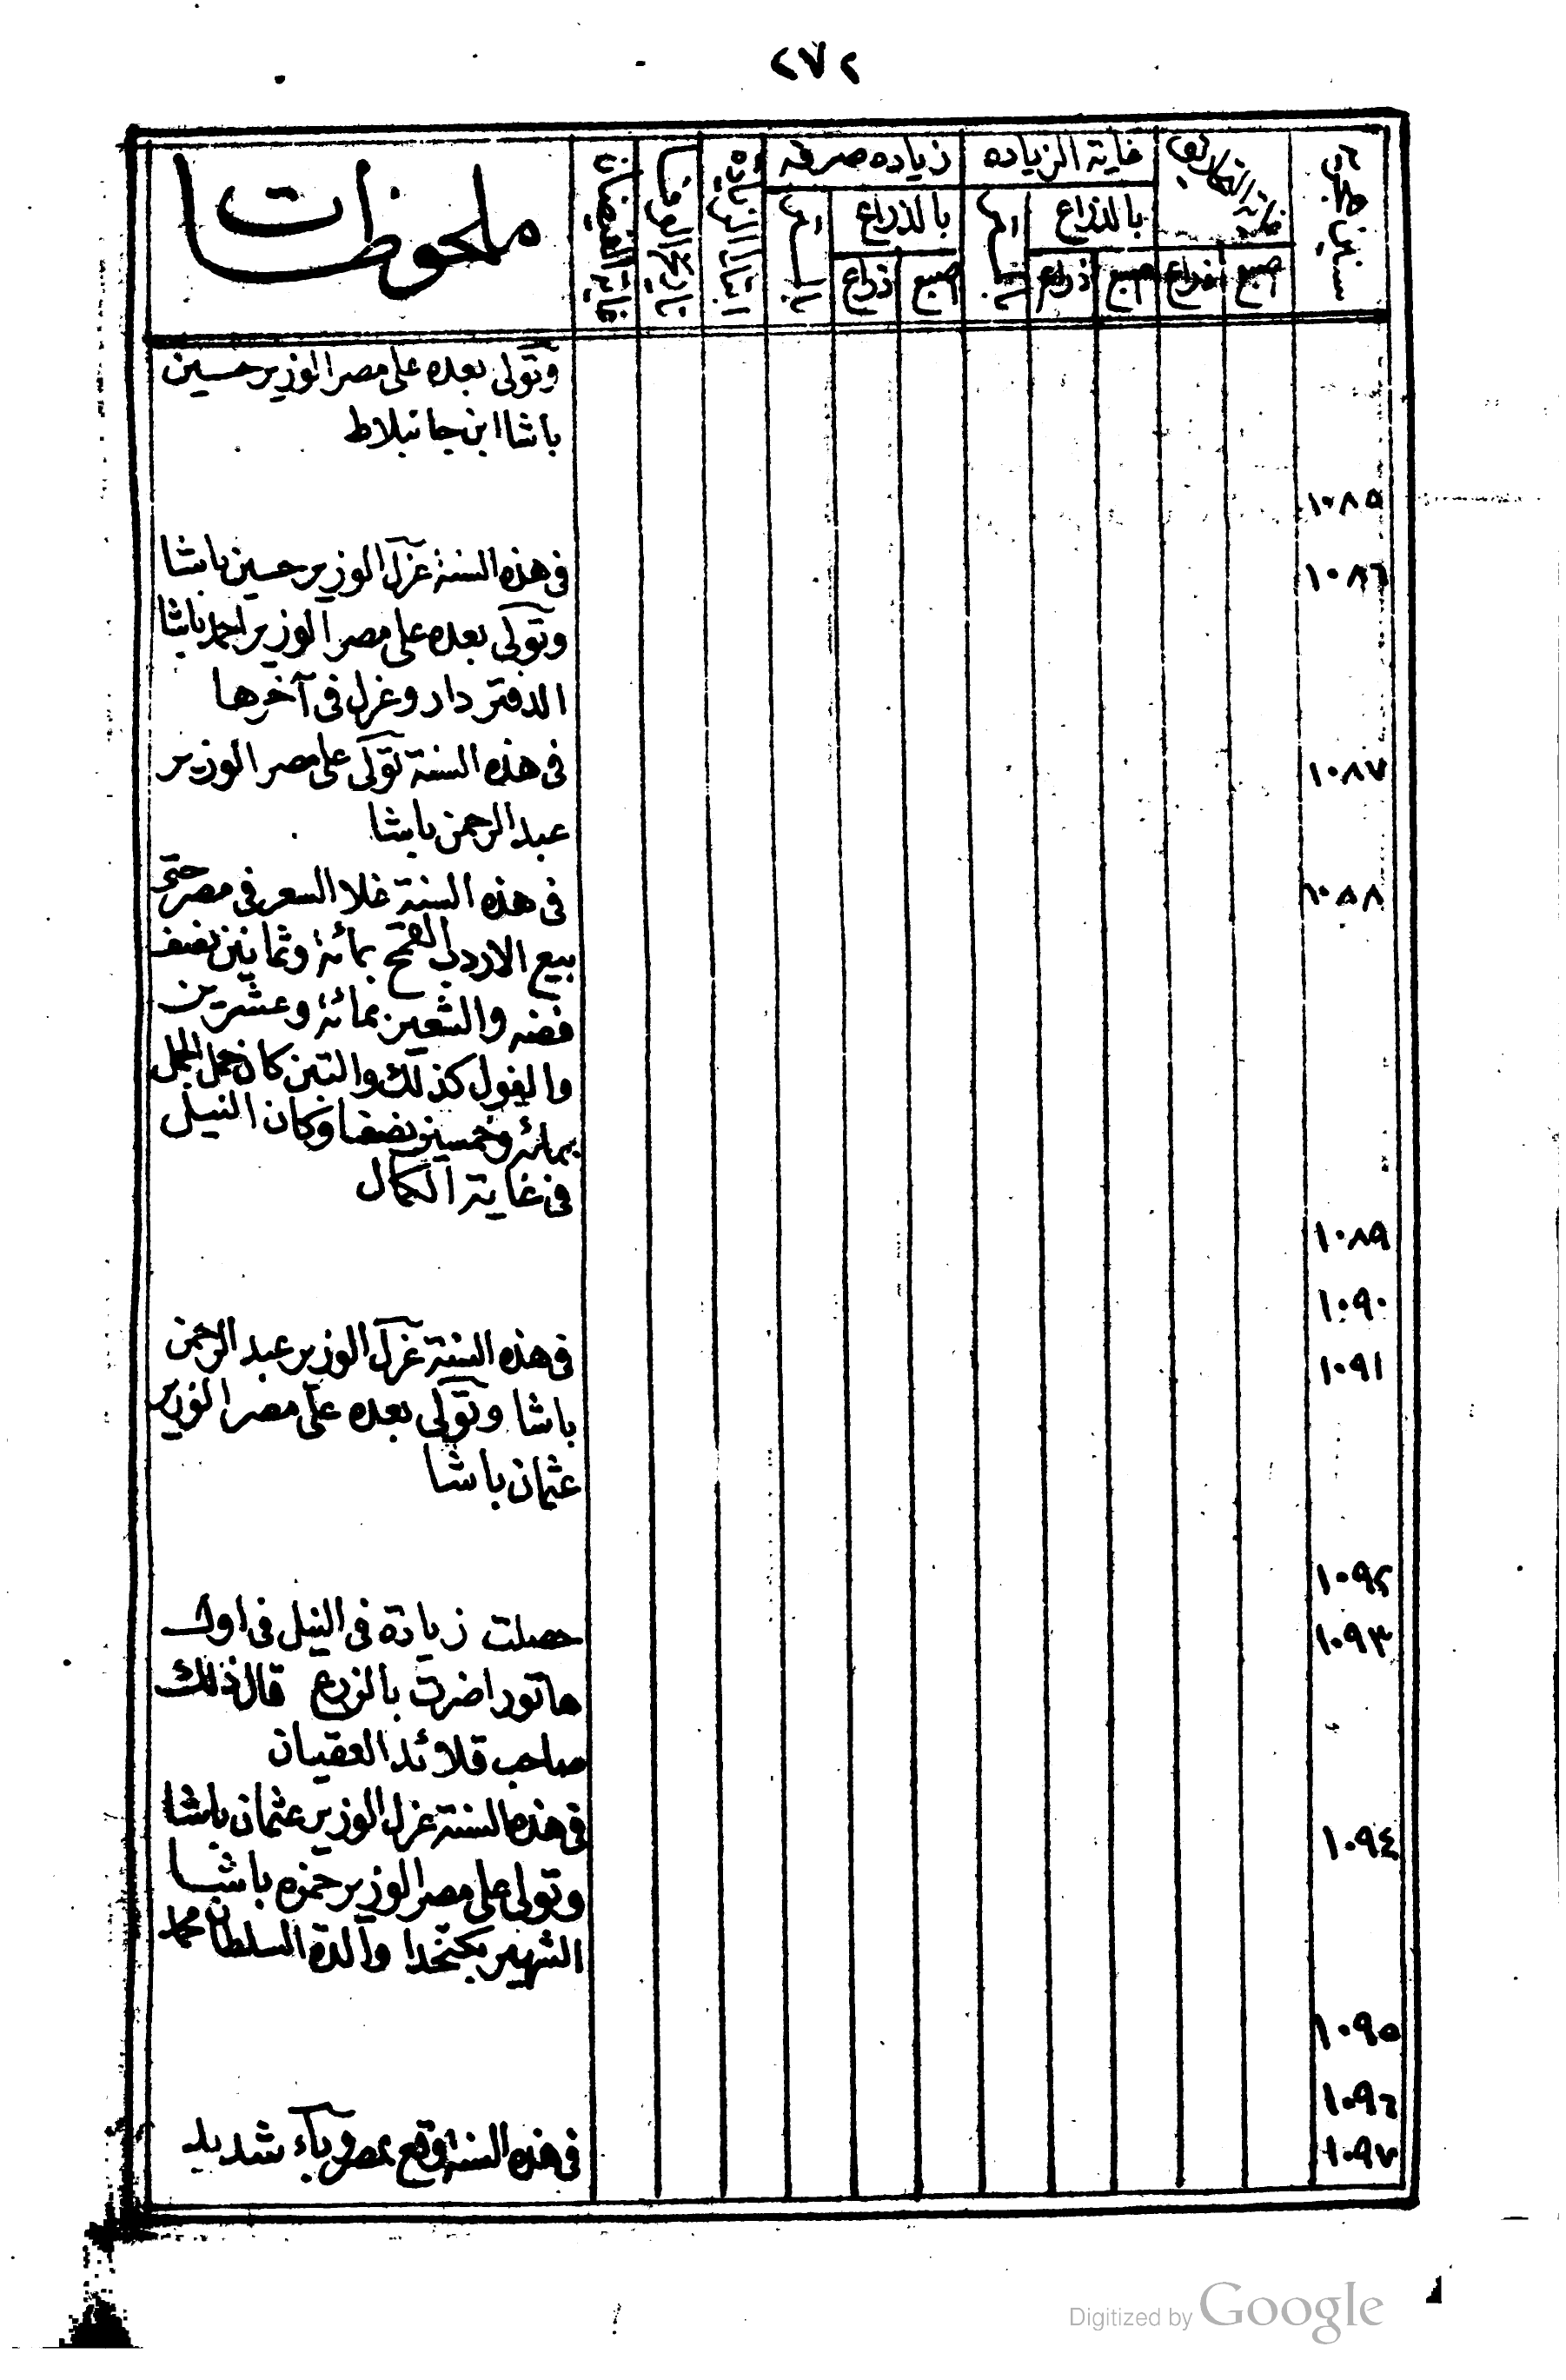 ٢٧٢
سنين هجرية
غاية التحاريق
غاية الزياده
زياده صرفه
ابتدا الزيادة
تاريخ الوفا
غاية الفيضان
ملحوظات
بالذراع
بالذراع
اصبع
ذراع
اصبع
ذراع
اصبع
ذراع
وتولى بعده على مصر الوزير حسين
باشا ابن جانبلاط
١٠٨٥
١٠٨٦
فى هذه السنة عزل الوزير حسين باشا
وتولى بعده على مصر الوزير احمد باشا
الدفتردار وعزل فى آخرها
١٠٨٧
فى هذه السنة تولى على مصر الوزير
عبد الرحمن باشا
١٠٨٨
فى هذه السنة غلا السعر فى مصر حتى
بيع الاردب القمح بمائة وثمانين نصف
فضه والشعير بمائة وعشرين
والفول كذلك والتبن كان حمل الجمل
بمائة وخمسين نصفا وكان النيل
فى غاية الكمال
١٠٨٩
١٠٩٠
١٠٩١
فى هذه السنة عزل الوزير عبد الرحمن
باشا وتولى بعده على مصر الوزير
عثمان باشا
١٠٩٢
١٠٩٣
حصلت زيادة فى النيل فى اول
هاتور اضرت بالزرع قال ذلك
صاحب قلائد العقيان
١٠٩٤
فى هذه السنة عزل الوزير عثمان باشا
وتولى على مصر الوزير حمزه باشا
الشهير بكتخدا والدة السلطان محمد
١٠٩٥
١٠٩٦
١٠٩٧
فى هذه السنة وقع بمصر وبآء شديد
Digitized by Google